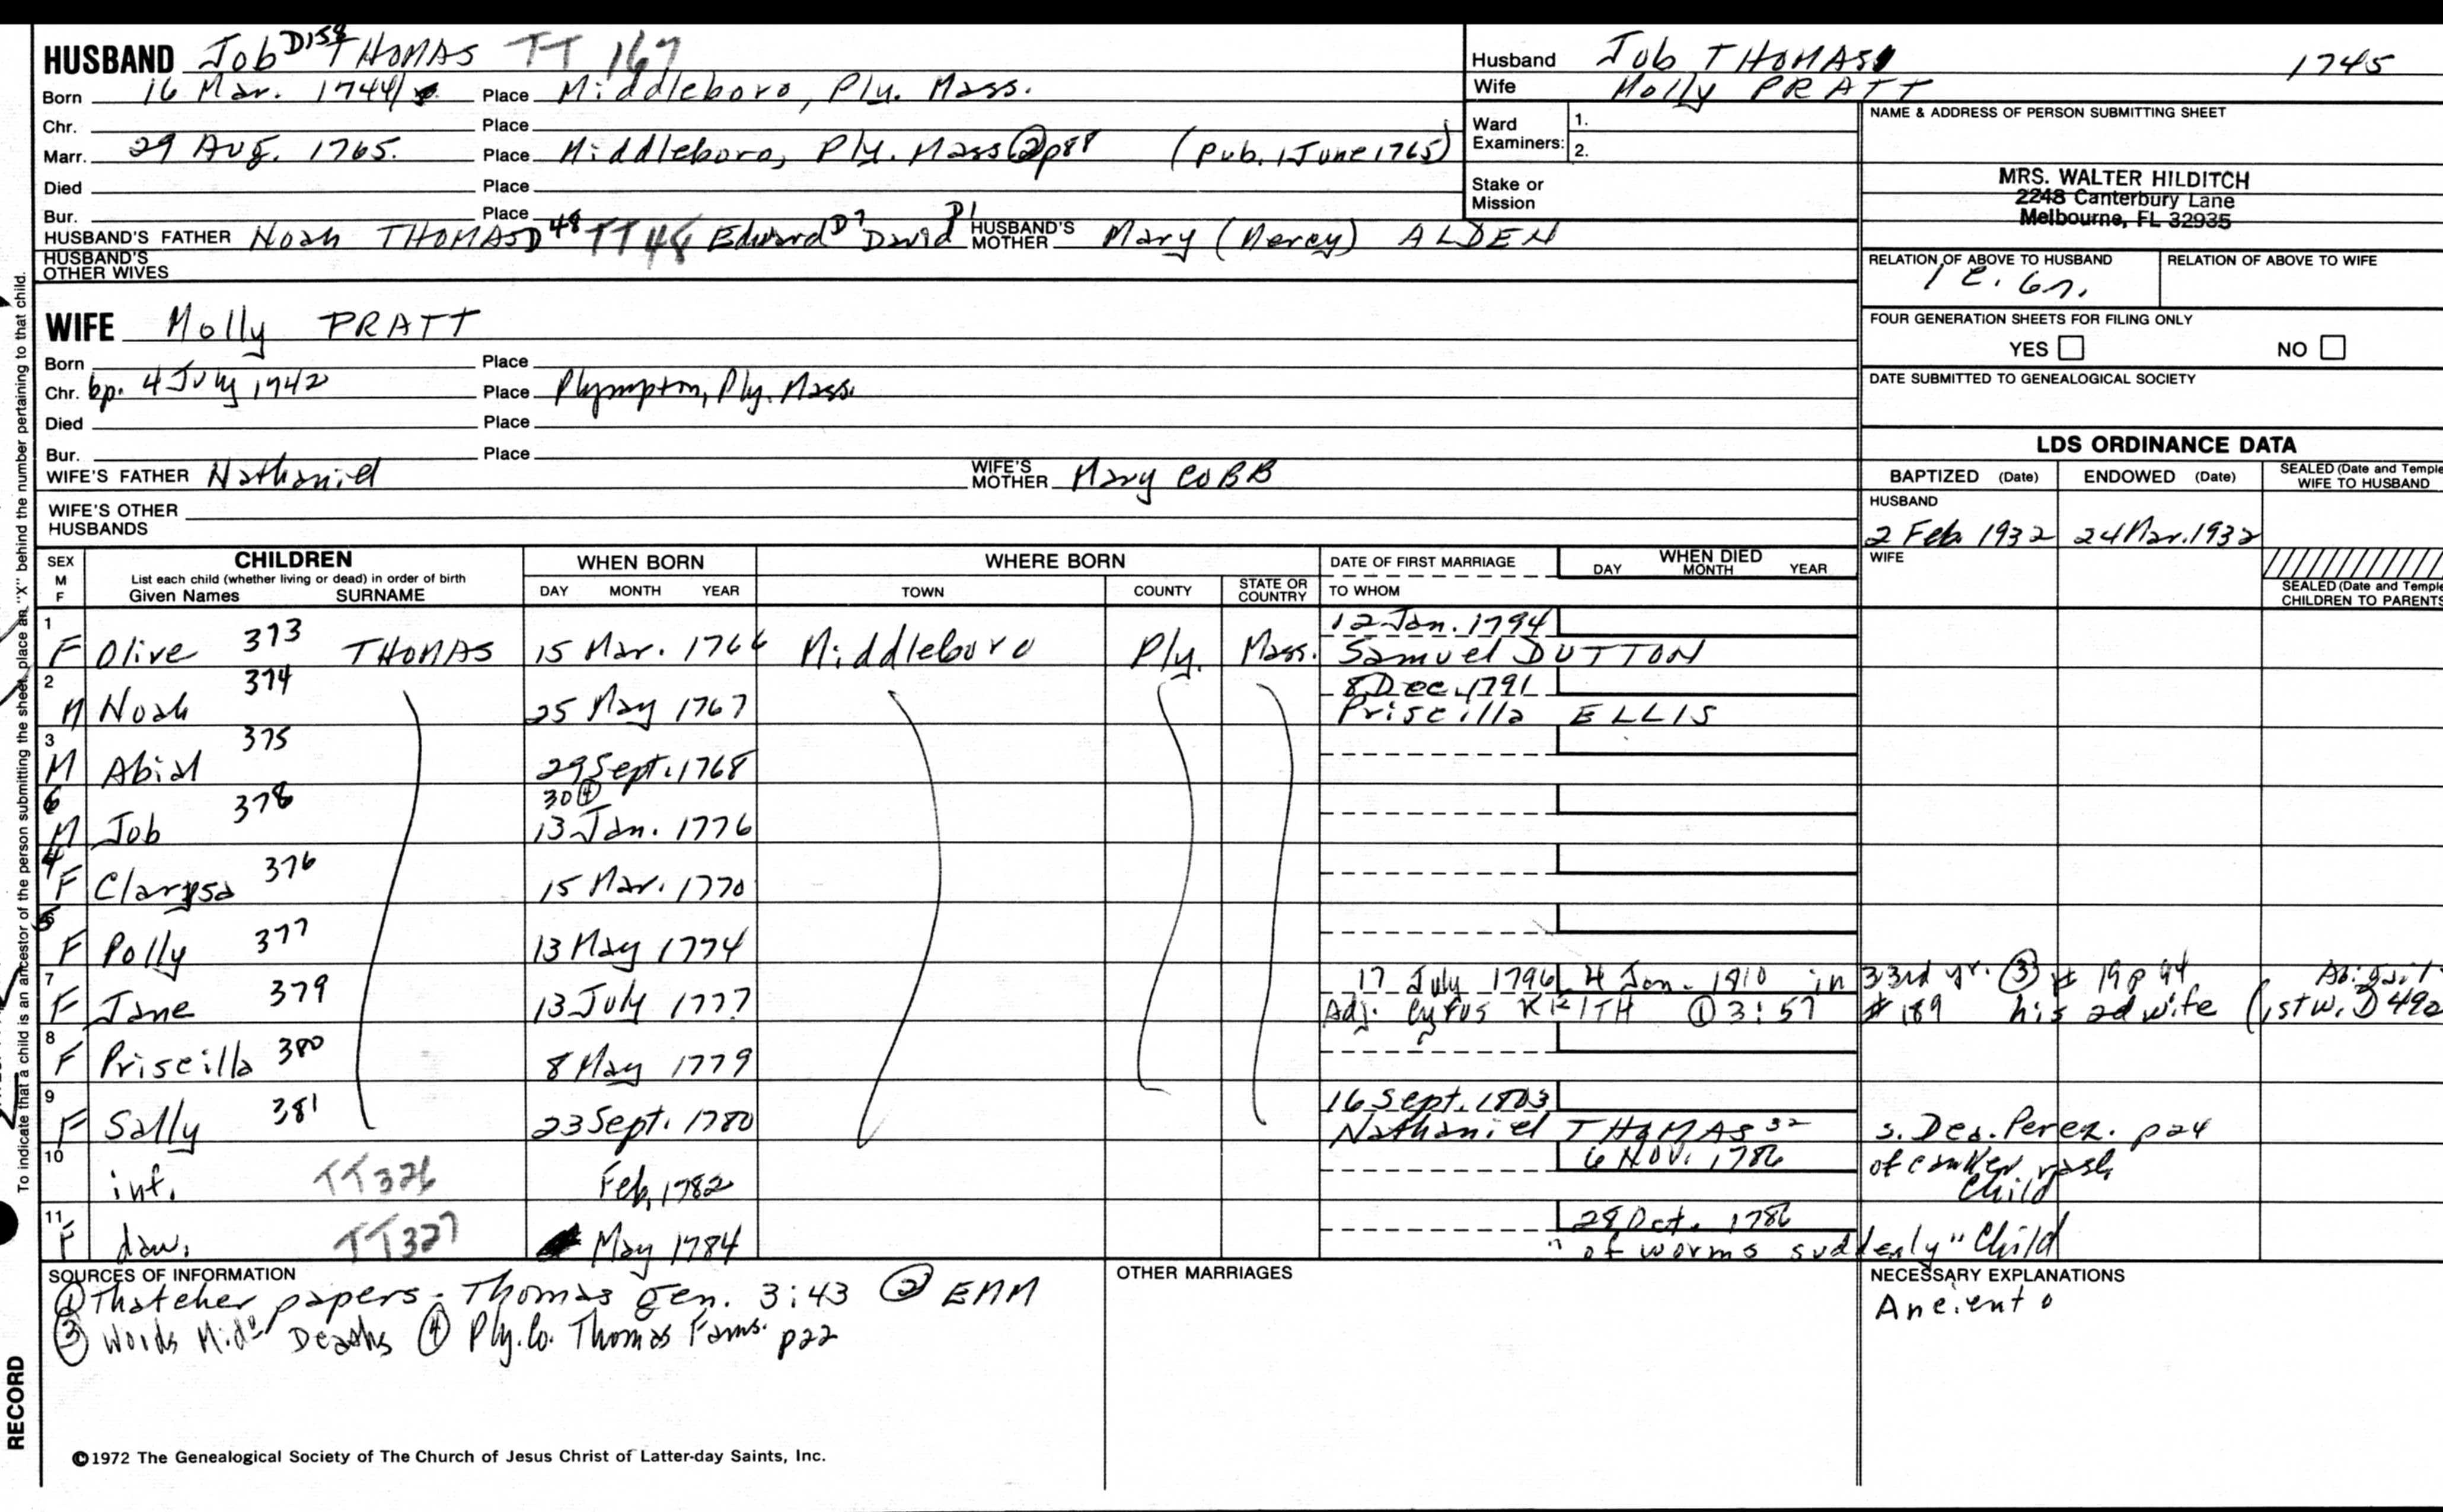 HUSBAND Job D158 THOMAS TT 167
Born 16 Mar. 1744/ Place Middleboro, Ply. Mass.
Chr. Place
Marr. 29 Aug. 1765. Place Middleboro, Ply. Mass ② p88 (Pub. 1 June 1765)
Died Place
Bur. Place
HUSBAND'S FATHER Noah THOMAS D48 TT48 Edward D7 David D1 HUSBAND'S MOTHER Mary (Mercy) ALDEN
HUSBAND'S OTHER WIVES
WIFE Molly PRATT
Born Place
Chr. bp. 4 July 1742 Place Plympton, Ply. Mass.
Died Place
Bur. Place
WIFE'S FATHER Nathaniel WIFE'S MOTHER Mary COBB
WIFE'S OTHER HUSBANDS
Husband Job THOMAS 1745
Wife Molly PRATT
Ward Examiners: 1.
2.
Stake or Mission
NAME & ADDRESS OF PERSON SUBMITTING SHEET
MRS. WALTER HILDITCH
2248 Canterbury Lane
Melbourne, FL 32935
RELATION OF ABOVE TO HUSBAND RELATION OF ABOVE TO WIFE
1 c. 6r.
FOUR GENERATION SHEETS FOR FILING ONLY
YES NO
DATE SUBMITTED TO GENEALOGICAL SOCIETY
LDS ORDINANCE DATA
BAPTIZED (Date) ENDOWED (Date) SEALED (Date and Temple) WIFE TO HUSBAND
HUSBAND
2 Feb. 1932 24 Mar. 1932
WIFE
SEALED (Date and Temple) CHILDREN TO PARENTS
SEX M F CHILDREN List each child (whether living or dead) in order of birth Given Names SURNAME
WHEN BORN DAY MONTH YEAR
WHERE BORN TOWN COUNTY STATE OR COUNTRY
DATE OF FIRST MARRIAGE TO WHOM
WHEN DIED DAY MONTH YEAR
1 F Olive 373 THOMAS 15 Mar. 1766 Middleboro Ply. Mass. 12 Jan. 1794 Samuel DUTTON
2 M Noah 374 25 May 1767 8 Dec. 1791 Priscilla ELLIS
3 M Abial 375 29 Sept. 1768
6 M Job 378 30 ④ 13 Jan. 1776
4 F Claryssa 376 15 Mar. 1770
5 F Polly 377 13 May 1774
7 F Jane 379 13 July 1777 17 July 1796 4 Jan. 1810 in 33rd yr. ③ # 19 p 94 Abigail
Adj. Cyrus KEITH ① 3:57 # 189 his 2d wife (1st w. D 492
8 F Priscilla 380 8 May 1779
9 F Sally 381 23 Sept. 1780 16 Sept. 1803 Nathaniel THOMAS 32 s. Dea. Perez. p24
10 inf. TT326 Feb. 1782 6 Nov. 1786 of canker rash Child
11 F daw. TT327 May 1784 28 Oct. 1786
"of worms suddenly" Child
SOURCES OF INFORMATION
① Thatcher papers - Thomas gen. 3:43 ② EMM
③ Woods Mid° Deaths ④ Ply. Co. Thomas Fams. p22
OTHER MARRIAGES
NECESSARY EXPLANATIONS
Ancient
©1972 The Genealogical Society of The Church of Jesus Christ of Latter-day Saints, Inc.
To indicate that a child is an ancestor of the person submitting the sheet, place an "X" behind the number pertaining to that child.
RECORD